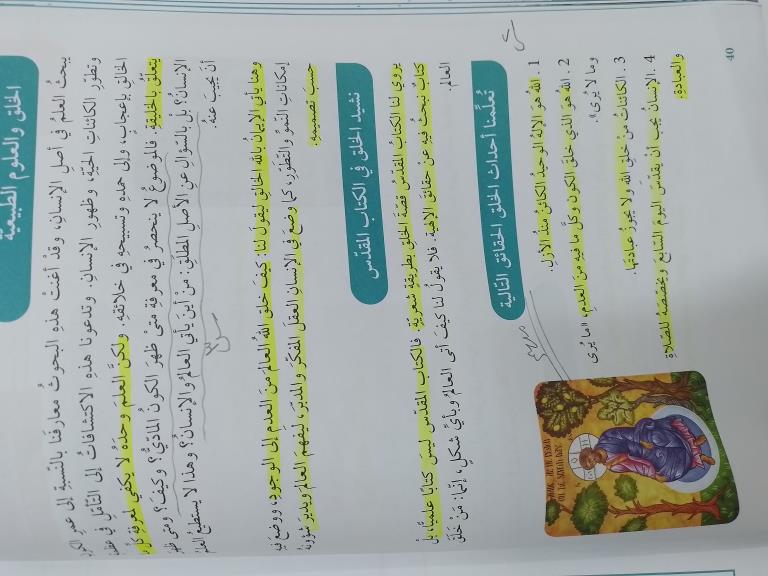 الخلق والعلوم الطبيعية
يبحثُ العلمُ في أصلِ الإنسانِ، وقدْ أغنتْ هذهِ البحوثُ معارفَنا بالنّسبةِ إلى عمرِ الكونِ
وتطوّرِ الكائناتِ الحيّةِ، وظهورِ الإنسانِ. وتدعونا هذهِ الاكتشافاتُ إلى التّأمّلِ في
الخالقِ بإعجابٍ، وإلى حمدِهِ وتسبيحِهِ في خلائقِهِ. ولكنَّ العلمَ وحدَهُ لا يكفي لمعرفةِ كلِّ
يتعلّقُ بالخليقةِ فالموضوعُ لا ينحصرُ في معرفةِ متى ظهرَ الكونُ المادّيُّ؟ وكيفَ؟ ومتى
الإنسانُ؟ بل بالسّؤالِ عنِ الأصلِ المطلقِ: من أينَ يأتي العالمُ والإنسانُ؟ وهذا لا يستطيعُ العلمُ
أنْ يجيبَ عنهُ.
وهنا يأتي الإيمانُ باللهِ الخالقِ ليقولَ لنا: كيفَ خلقَ اللهُ العالمَ منَ العدمِ إلى الوجودِ، ووضعَ فيهِ
إمكاناتِ النّموِّ والتّطوّرِ، كما وضعَ في الإنسانِ العقلَ المفكّرَ والمدبّرَ، ليفهمَ العالمَ ويديرَ شؤونَهُ
حسبَ تصميمِهِ.
نشيد الخلق في الكتاب المقدّس
يروي لنا الكتابُ المقدّسُ قصّةَ الخلقِ بطريقةٍ شعريّةٍ. فالكتابُ المقدّسُ ليسَ كتابًا علميًّا، بل
كتابٌ نبحثُ فيهِ عنْ حقائقَ إلهيّةٍ. فلا يقولُ لنا كيفَ أتى العالمُ وبأيِّ شكلٍ، إنّما: مَنْ خَلَقَ
العالمَ.
تُعلّمنا أحداث الخلق الحقائق التّالية
1. اللهُ هوَ الإلهُ الوحيدُ الكائنُ منذُ الأزلِ.
2. اللهُ هوَ الذي خلقَ الكونَ وكلَّ ما فيهِ منَ العدمِ، «ما يُرى
وما لا يُرى».
3. الكائناتُ مِنْ خلقِ اللهِ، ولا يجوزُ عبادتُها.
4. الإنسانُ يجبُ أنْ يقدّسَ اليومَ السّابعَ ويخصّصَهُ للصّلاةِ
والعبادةِ.
40